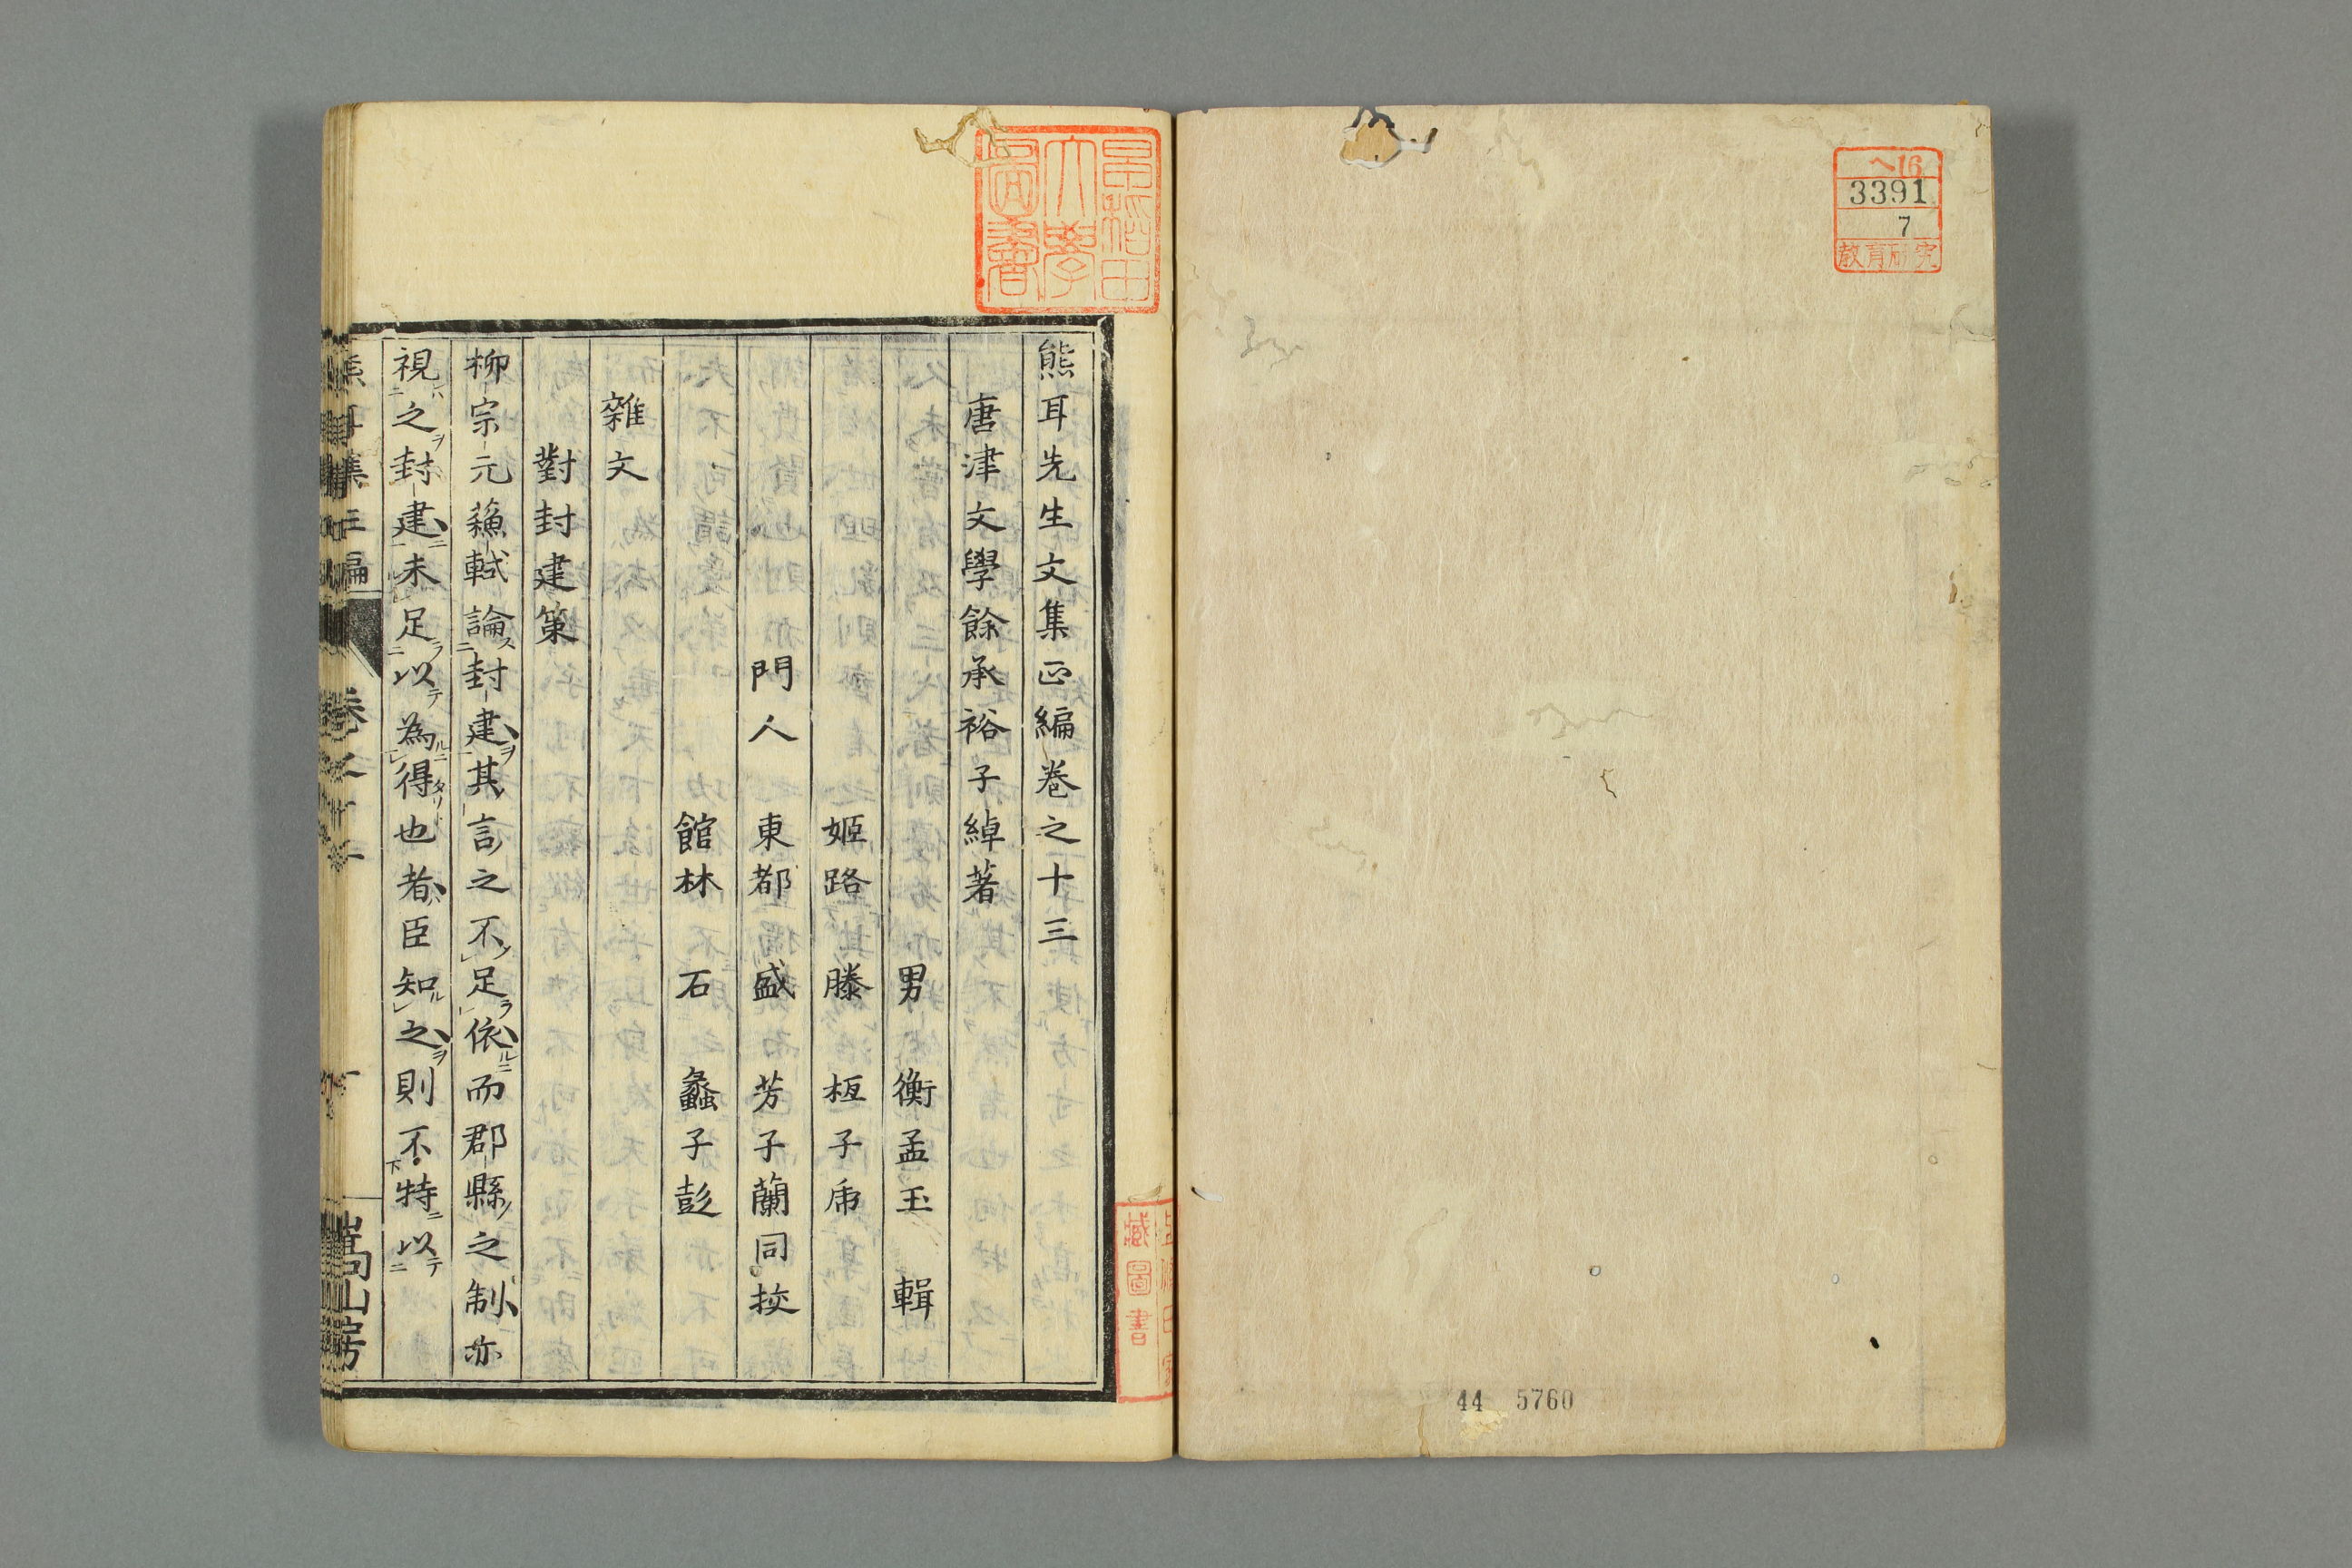 へ16
3391
7
教育研究
44 5760
早稲田大學圖書
藏圖書
熊耳先生文集正編巻之十三
唐津文學餘承裕子綽著
男 衡孟玉 輯
姬路 滕 桓子帍
門人 東都 盛 芳子蘭同挍
館林 石 蠡子彭
雜文
對封建策
柳宗元蘓軾論封建其言之不足依而郡縣之制亦
視之封建未足以為得也者臣知之則不特以
嵩山房